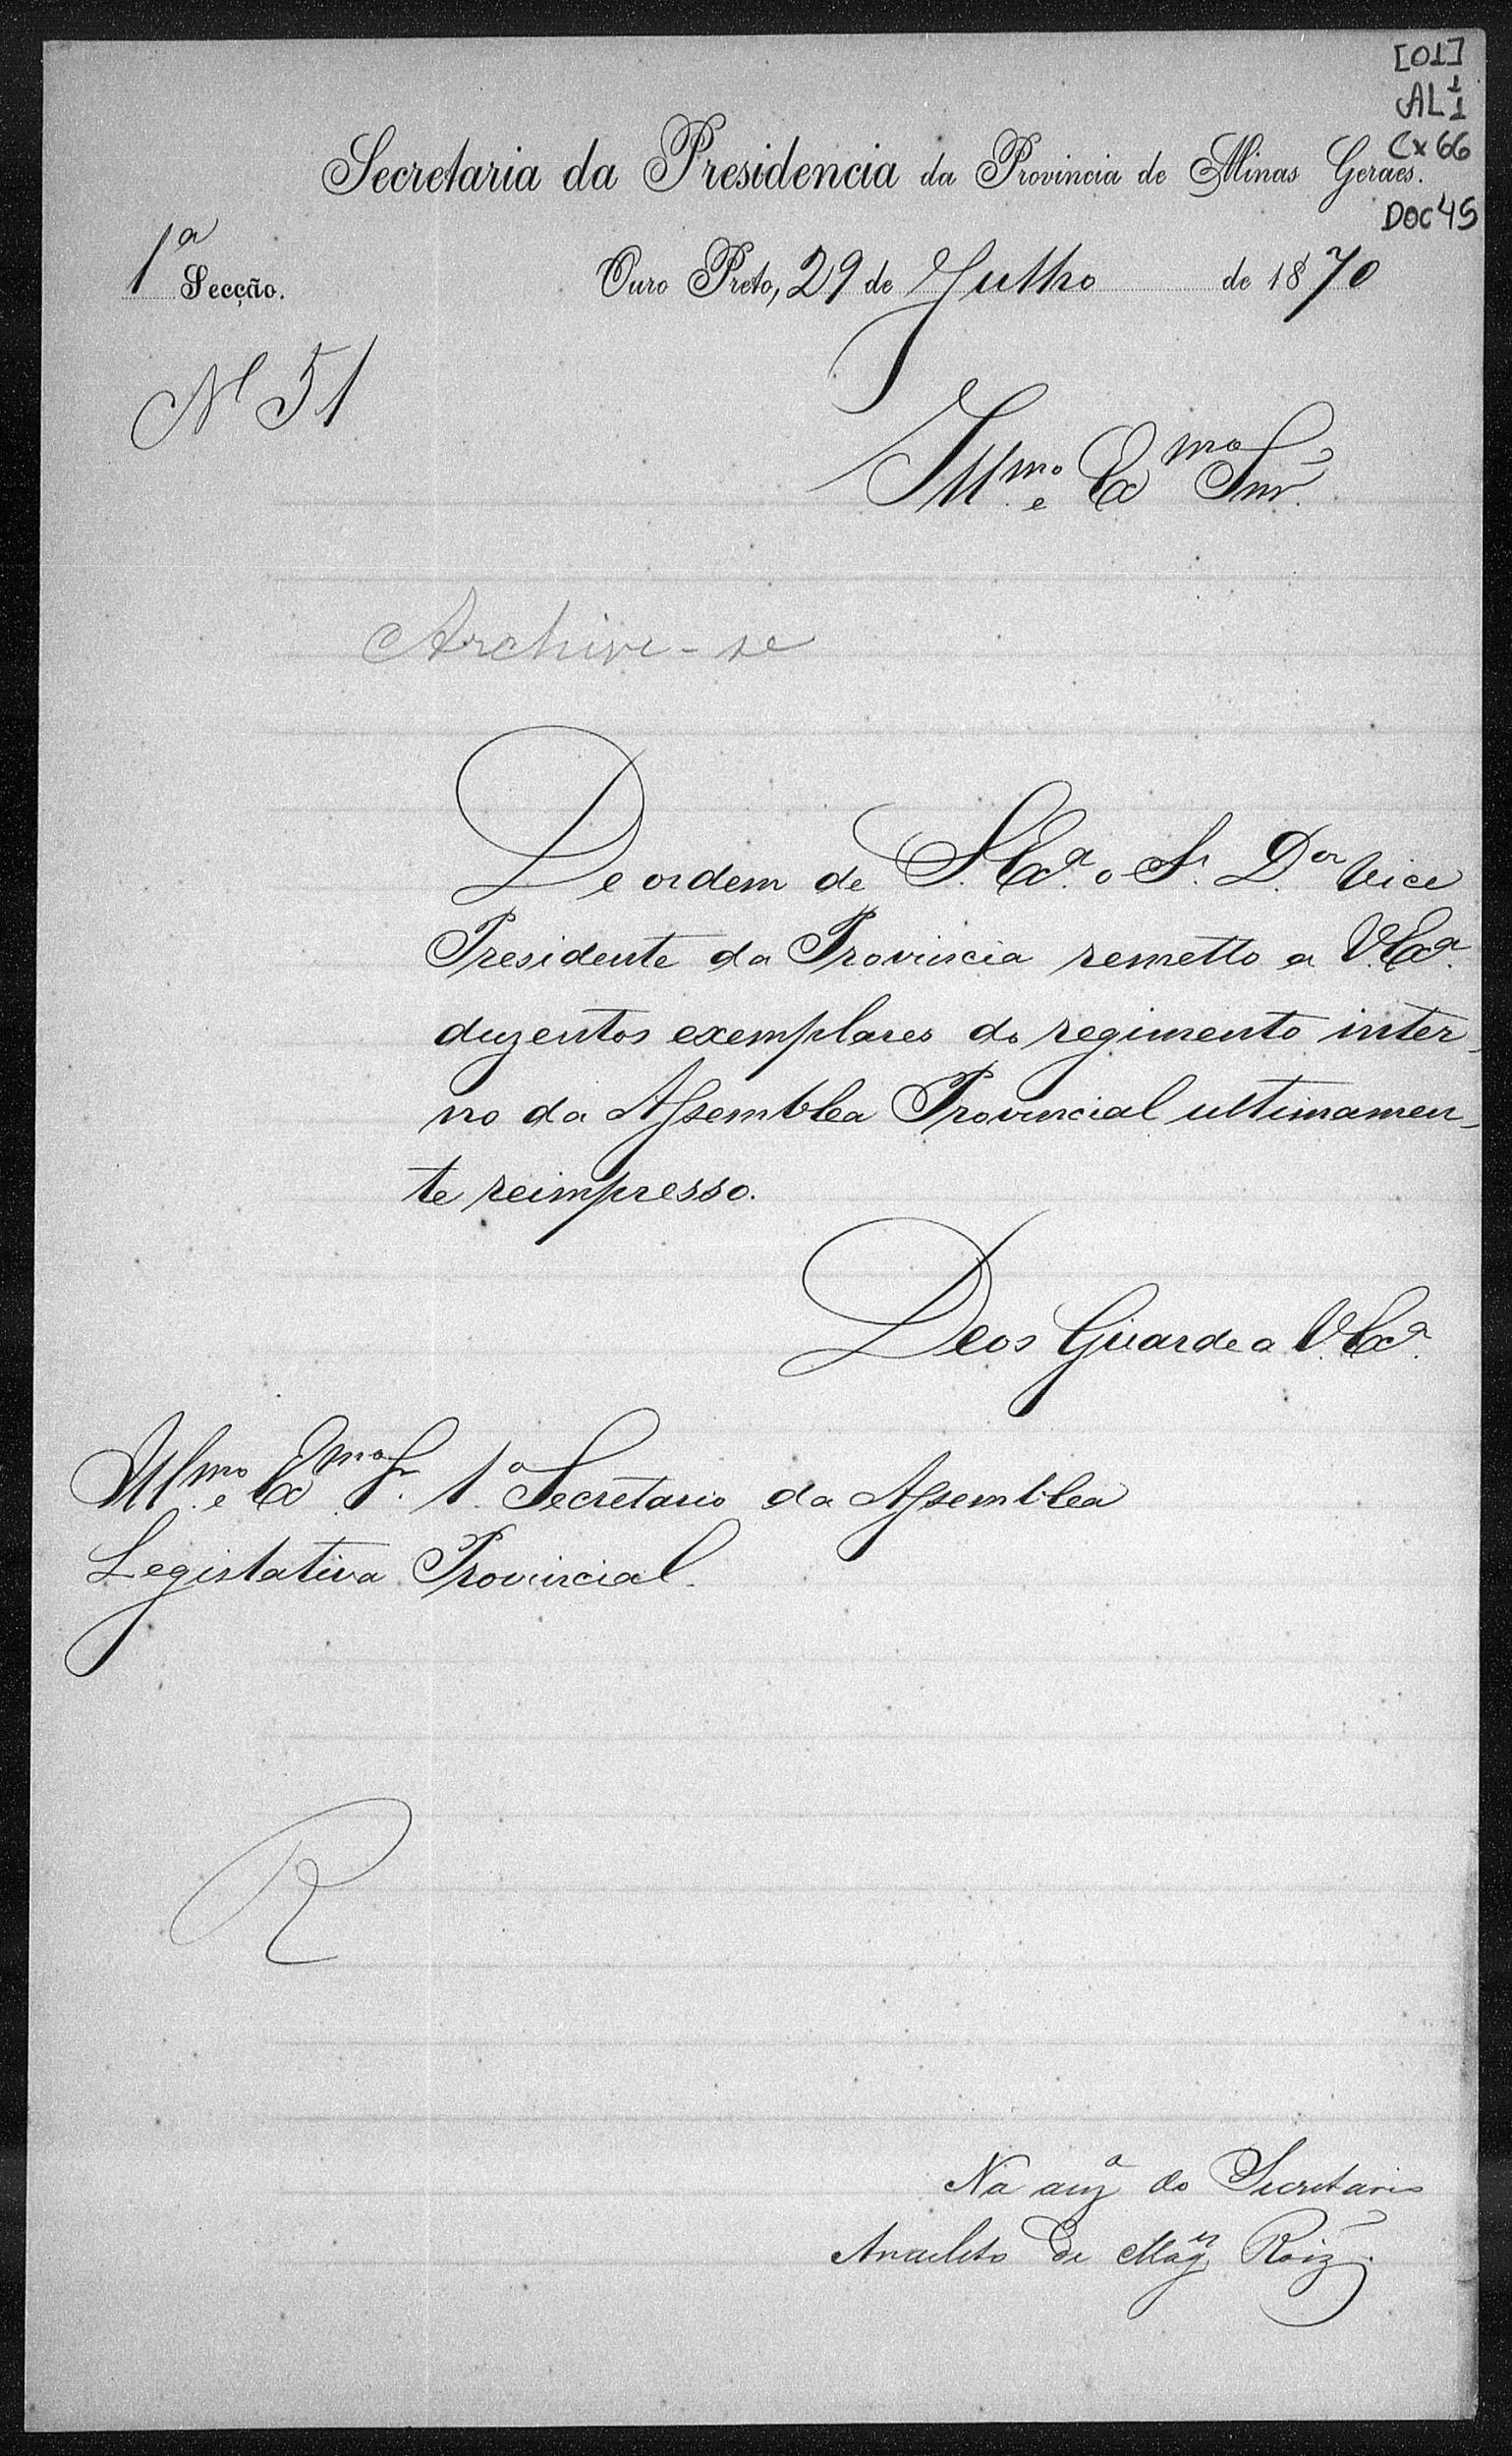 [01]
AL 1 1
Cx 66
DOC 45
Secretaria da Presidencia da Provincia de Minas Geraes.
1ª Secção.
Ouro Preto, 29 de Julho de 1870
Nº 51
Illmo. e Exmo Snr.
Archive-se
De ordem de S. Exª. o Sr. Dor. Vice
Presidente da Provincia remetto a V. Exª.
duzentos exemplares do regimento inter-
no da Assemblea Provincial ultimamen-
te reimpresso.
Deos Guarde a V. Exª.
Illmo. e Exmo Sr. 1º Secretario da Assemblea
Legislativa Provincial.
R
Na auzª do Secretario
Anacleto de Mages Roiz.